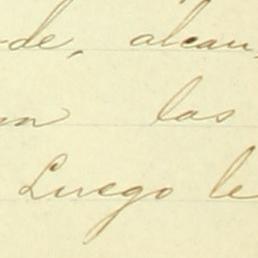 -de, alcan
las
Luego le